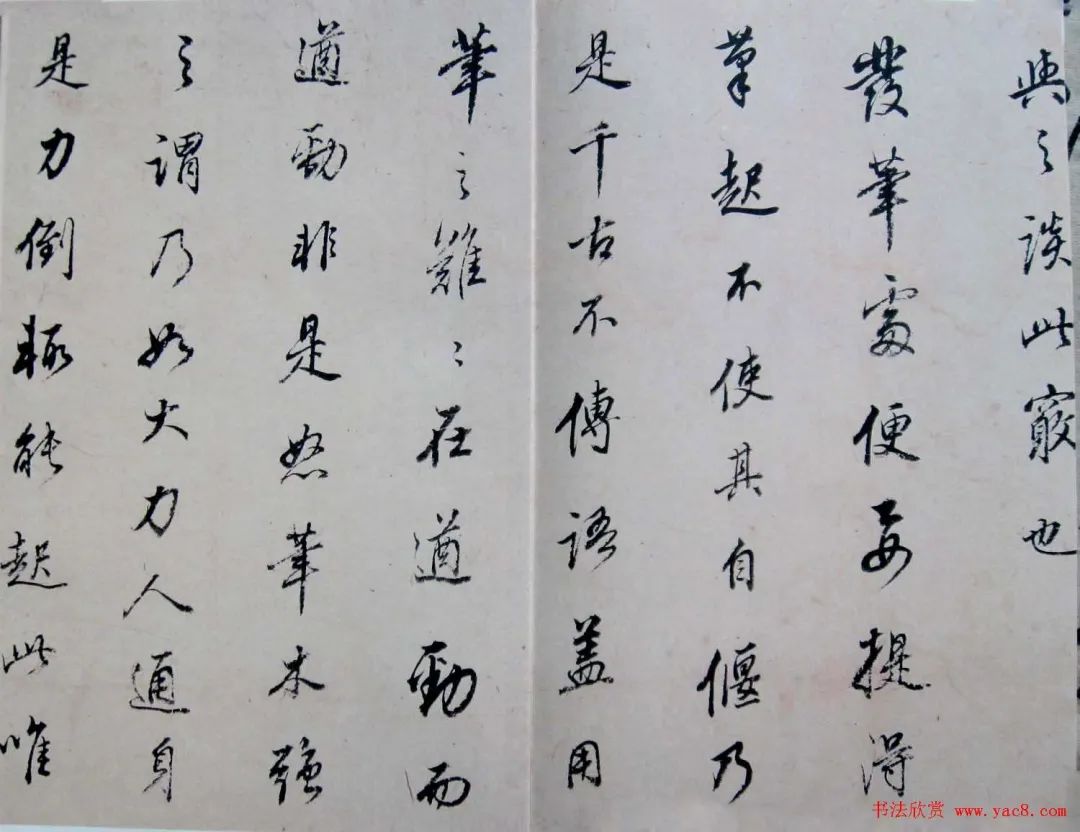 與之談此竅也
發筆處便要提得
筆起不使其自偃乃
是千古不傳語蓋用
筆之難〻在遒勁而
遒勁非是怒筆木強
之謂乃如大力人通身
是力倒輒能起此唯
书法欣赏 www.yac8.com